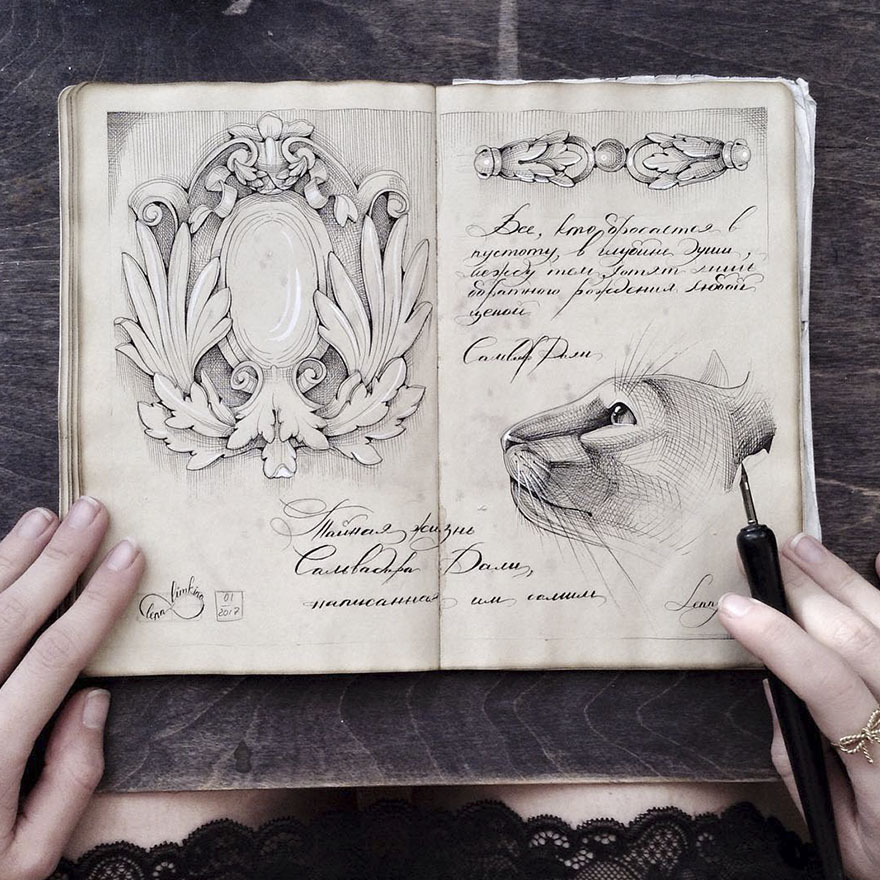 Все, кто бросается в
пустоту, в глубине души,
между тем хотят лишь
обратного рождения любой
ценой.
Сальвадор Дали
Тайная жизнь
Сальвадора Дали,
написанная им самим
lena limkina
01
2017
Lenny